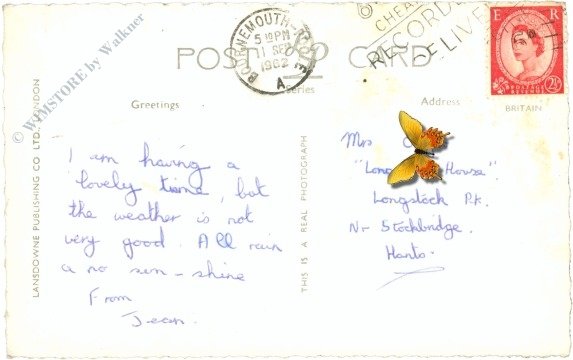 POST CARD
BOURNEMOUTH-POOLE
5 30 PM
11 SEP
1962
A
CHEAP
RECORDE
DELIVE
E R
POSTAGE
REVENUE
2½D
Series
Greetings
Address
BRITAIN
© WIMSTORE by Walkner
LANSDOWNE PUBLISHING CO LTD. LONDON
THIS IS A REAL PHOTOGRAPH
I am having a
lovely time, but
the weather is not
very good. All rain
a no sun-shine
From
Jean.
Mrs
"Long House".
Longstock Pk.
Nr Stockbridge.
Hants.